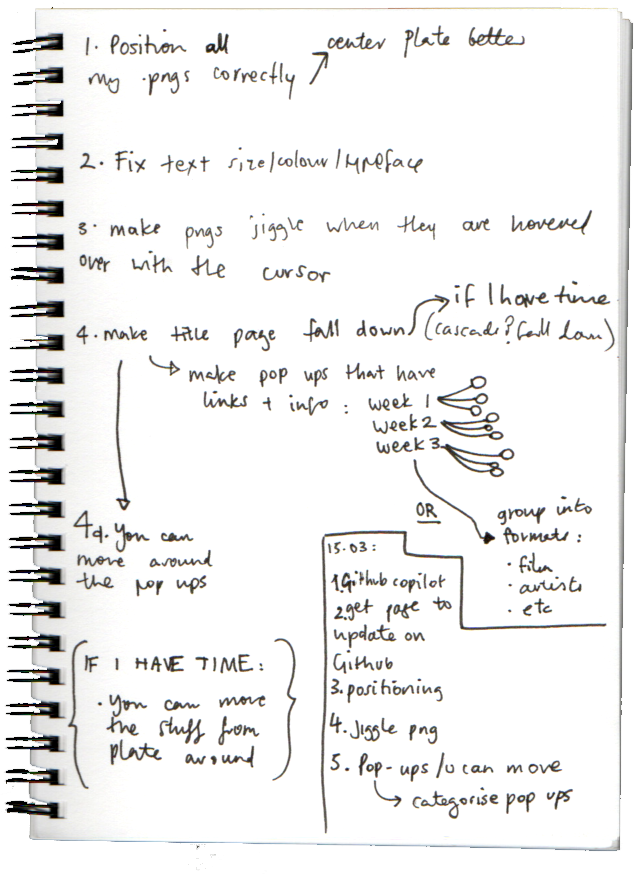 1. Position all
my .pngs correctly
center plate better
2. Fix text size/colour/typeface
3. make pngs jiggle when they are hovered
over with the cursor
4. make title page fall down
if I have time
(cascade? fall down)
make pop ups that have
links + info : week 1
week 2
week 3
OR
group into
formats:
· film
· artists
· etc
4d. You can
move around
the pop ups
IF I HAVE TIME:
· You can move
the stuff from
plate around
15.03:
1. Github copilot
2. get page to
update on
Github
3. positioning
4. Jiggle png
5. Pop-ups / u can move
categorise pop ups